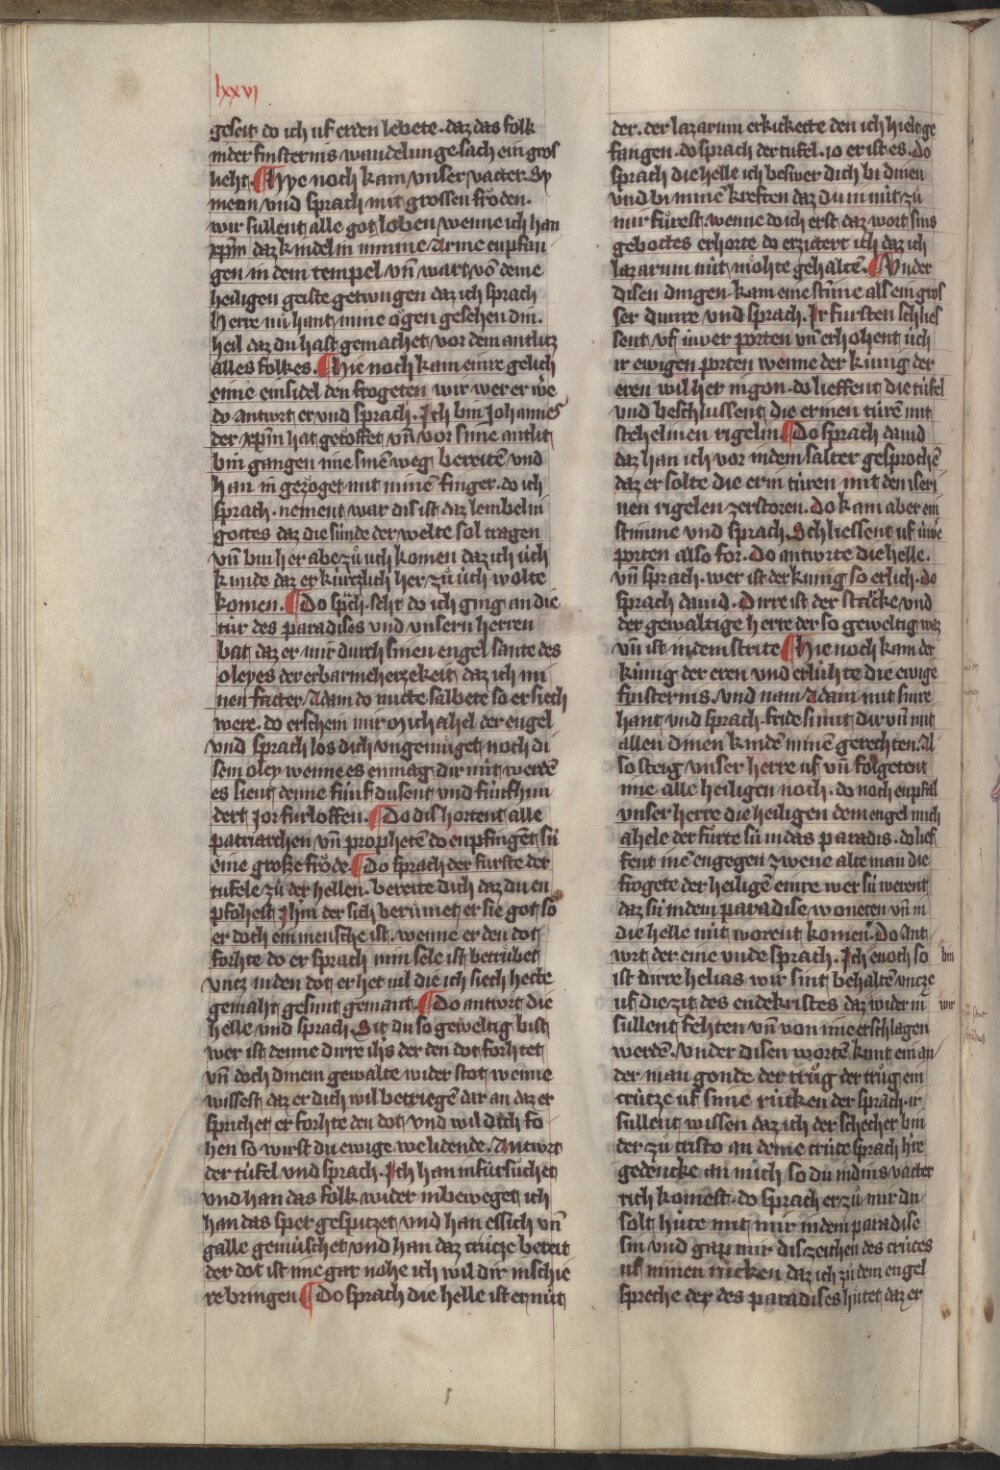 lxxvi
geseit do ich uf erden lebete. daz das folk
in der finsternis wandelunge sach ein gros
lieht. Hye noch kam vnser vatter. Sy
meon vnd sprach mit grossen fröden.
wir süllent alle got loben wenne ich han
xpm̄ daz kindelin in mine Arme enpfan
gen in dem tempel vn̄ wart vō deme
heiligen geiste getwngen daz ich sprach
herre nū hant mine ögen gesehen din.
heil daz du hast gemachet vor dem antlitz
alles folkes. Hie noch kam eine gelich
eime einsidel den frogeten wir wer er we
do antwrt er vnd sprach. Ich bin Johannes
der xpm̄ hat getöffet vn̄ vor sime antlit
bin gangen ime sinē weg bereitē vnd
han in gezöget mit minē finger. do ich
sprach. nement war dis ist daz lembelin
gottes daz die sünde der welte sol tragen
vn̄ bin her abe zů uch komen daz ich üch
künde daz er kürtzlich her zů üch wolte
komen. Do sp̄ch seht do ich ging an die
tür des paradises vnd vnsern herren
bat daz er mir durch sinen engel sante des
oleyes der erbarmeherzekeit daz ich mi
nen fatter Adam do mitte salbete so er siech
were. do erschein mir Michahel der engel
vnd sprach los dich vngemüget noch di
sem oley wenne es enmag dir nüt werdē
es sient denne fünf dusent vnd fünfhun
dert Jor furloffen. Do dis hortent alle
patriarchen vn̄ prophetē do enpfingēt sü
eine große fröde Do sprach der fürste der
tufele zů der hellen. bereite dich daz du en
pfohest Jhm̄ der sich berümet er sie got so
er doch ein mensche ist. wenne er den dot
forhte do er sprach min sele ist betrübet
vntz in den dot er het vil die ich siech hette
gemaht gesunt gemant. Do antwrt die
helle vnd sprach. Sit du so geweltig bist
wer ist denne dirre ih̄s der den dot forhtet
vn̄ doch dinem gewalte wider stot wenne
wissest daz er dich wil betriegē dar an daz er
sprichet er forhte den dot vnd wil dich fo
hen so wirst du ewige we lidende. Antwrt
der tüfel vnd sprach. Ich han in fürsüchet
vnd han das folk wider in beweget ich
han das sper gespitzet vnd han essich vn̄
galle gemüschet vnd han daz crütze bereit
der dot ist ime gar nohe ich wil dir in schie
re bringen Do sprach die helle ist er nüt
der. der lazarum erkickete den ich hielt ge
fangen. do sprach der tufel. io er ist es. Do
sprach die helle ich beswer dich bi dinen
vnd bi minē kreften daz du in nüt zů
mir fürest. wenne do ich erst daz wort sins
gebottes erhorte do erzitert ich daz ich
lazarum nüt möhte gehaltē. Vnder
disen dingen kam eine stīme als ein gros
ser dunre vnd sprach. Ir fürsten schlies
sent vf üwer porten vn̄ erhöhent üch
ir ewigen porten wenne der künig der
eren wil her in gon. do lieffent die tüfel
vnd beschlussent die erinen türē mit
stehelinen rigelin Do sprach dauid
daz han ich vor in dem salter gesprochē
daz er solte die erin türen mit den iseri
nen rigelen zerstoren. Do kam aber ein
stimme vnd sprach. Schliessent uf üwe
porten also for. Do antwrte die helle.
vn̄ sprach. wer ist der kunig so erlich. do
sprach dauid. Dirre ist der starcke vnd
der gewaltige herre der so geweltig waz
vn̄ ist in dem strite Hie noch kam der
künig der eren vnd erlůhte die ewige
finsternis. vnd nam Adam mit sinre
hant vnd sprach. fride si mit dir vn̄ mit
allen dinen kindē minē gerechten. Al
so steig vnser herre uf vn̄ folgetent
ime alle heiligen noch. do noch enpfal
vnser herre die heiligen dem engel mich
ahele der fürte sü in das paradis. do lief
fent īme engegen zwene alte man die
frogete der heiligē eine wer sü werent
daz sü in dem paradise woneten vn̄ in
die helle nüt worent komen. Do Ant
wrt der eine vnde sprach. Ich enoch so bin
ist dirre helias wir sint behaltē vntze
uf die zit des endekristes daz wider in wir
süllent fehten vn̄ von ime erschlagen
werdē. Vnder disen wortē kumt ein an
der man gonde der trůg der trůg ein
crütze uf sime rücken der sprach. ir
süllent wissen daz ich der schecher bin
der zů cristo an deme crütze sprach h're
gedencke an mich so du in dins vatter
rich komest. do sprach er zů mir du
solt hüte mit mir in dem paradise
sin vnd gap mir dis zeichen des crütes
uf minen rücken daz ich zů dem engel
spreche der des paradises hütet daz er